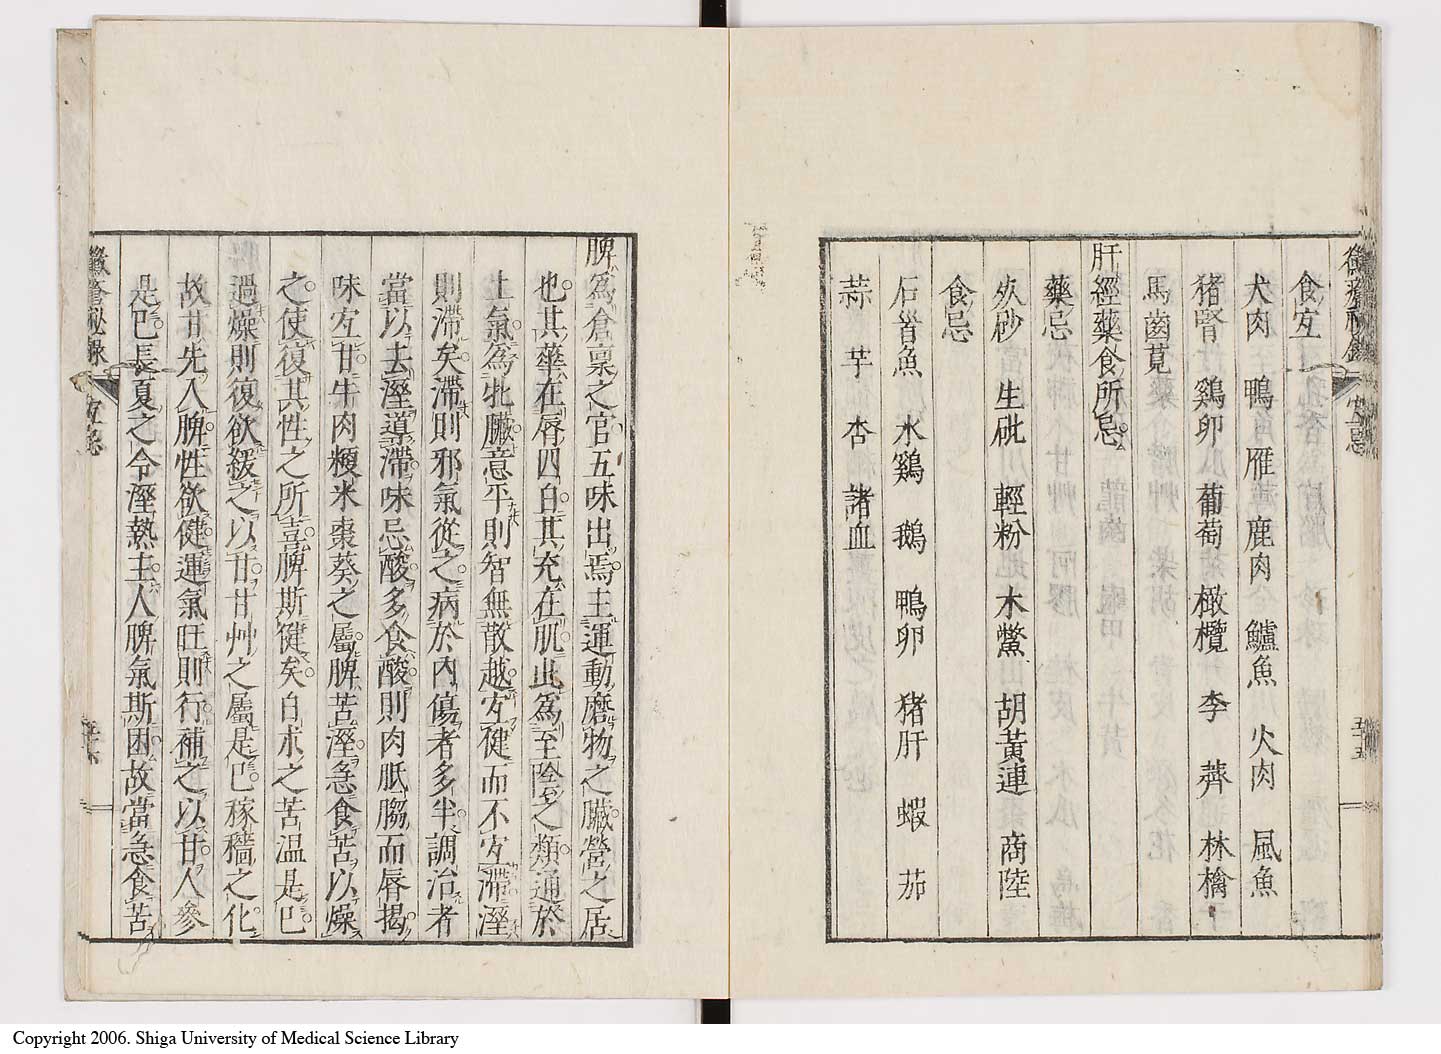 黴瘡秘錄 宜忌 五十五
食宜
犬肉 鴨 雁 鹿肉 鱸魚 火肉 風魚
猪腎 鷄卵 葡萄 橄欖 李 薺 林檎
馬齒莧
肝經藥食所忌
藥忌
灰砂 生砒 輕粉 木鱉 胡黃連 商陸
食忌
石首魚 水鷄 鵝 鴨卵 猪肝 蝦 茄
蒜 芋 杏 諸血
脾爲倉稟之官五味出焉主運動磨物之臟營之居
也其華在唇四白其充在肌此爲至陰之類通於
土氣爲牝臟意平則智無散越宜健而不宜滯溼
則滯矣滯則邪氣從之病於內傷者多半調治者
當以去溼道滯味忌酸多食酸則肉胝䐢而唇揭
味宜甘牛肉粳米棗葵之屬脾苦溼急食苦以燥
之使復其性之所喜脾斯健矣白朮之苦温是巳
過燥則復欲緩之以甘甘艸之屬是巳稼穡之化
故甘先入脾性欲健運氣旺則行補之以甘人參
是巳長夏之令溼熱主人脾氣斯困故當急食苦
黴瘡秘錄 宜忌
Copyright 2006. Shiga University of Medical Science Library